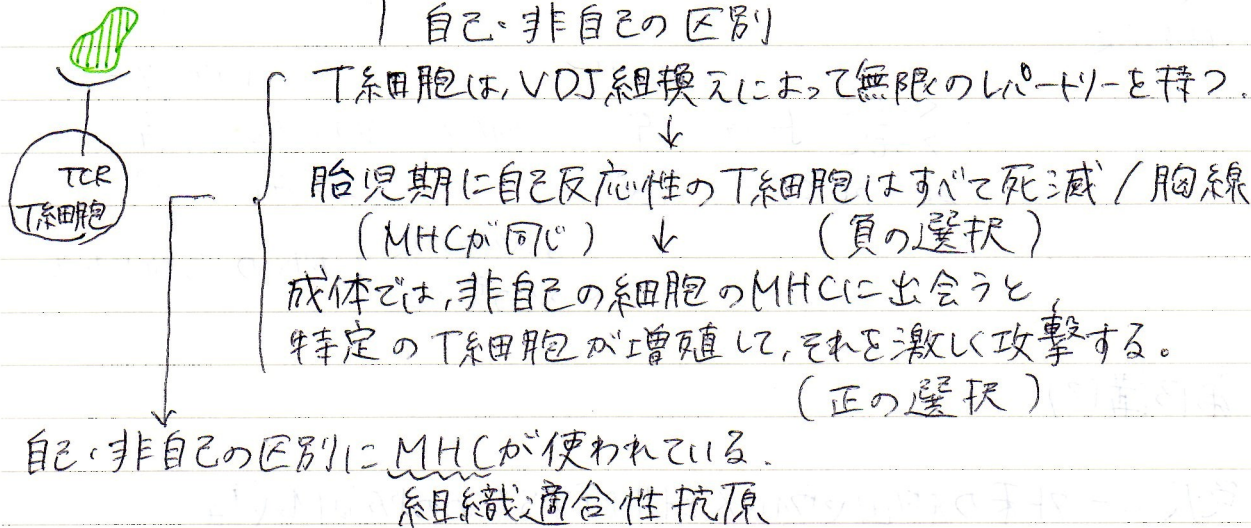 自己・非自己の区別
T細胞は,VDJ組換えによって無限のレパートリーを持つ.
↓
胎児期に自己反応性のT細胞はすべて死滅/胸線
(MHCが同じ) ↓ (負の選択)
成体では,非自己の細胞のMHCに出会うと,
特定のT細胞が増殖して,それを激しく攻撃する。
(正の選択)
TCR
T細胞
自己・非自己の区別にMHCが使われている.
組織適合性抗原